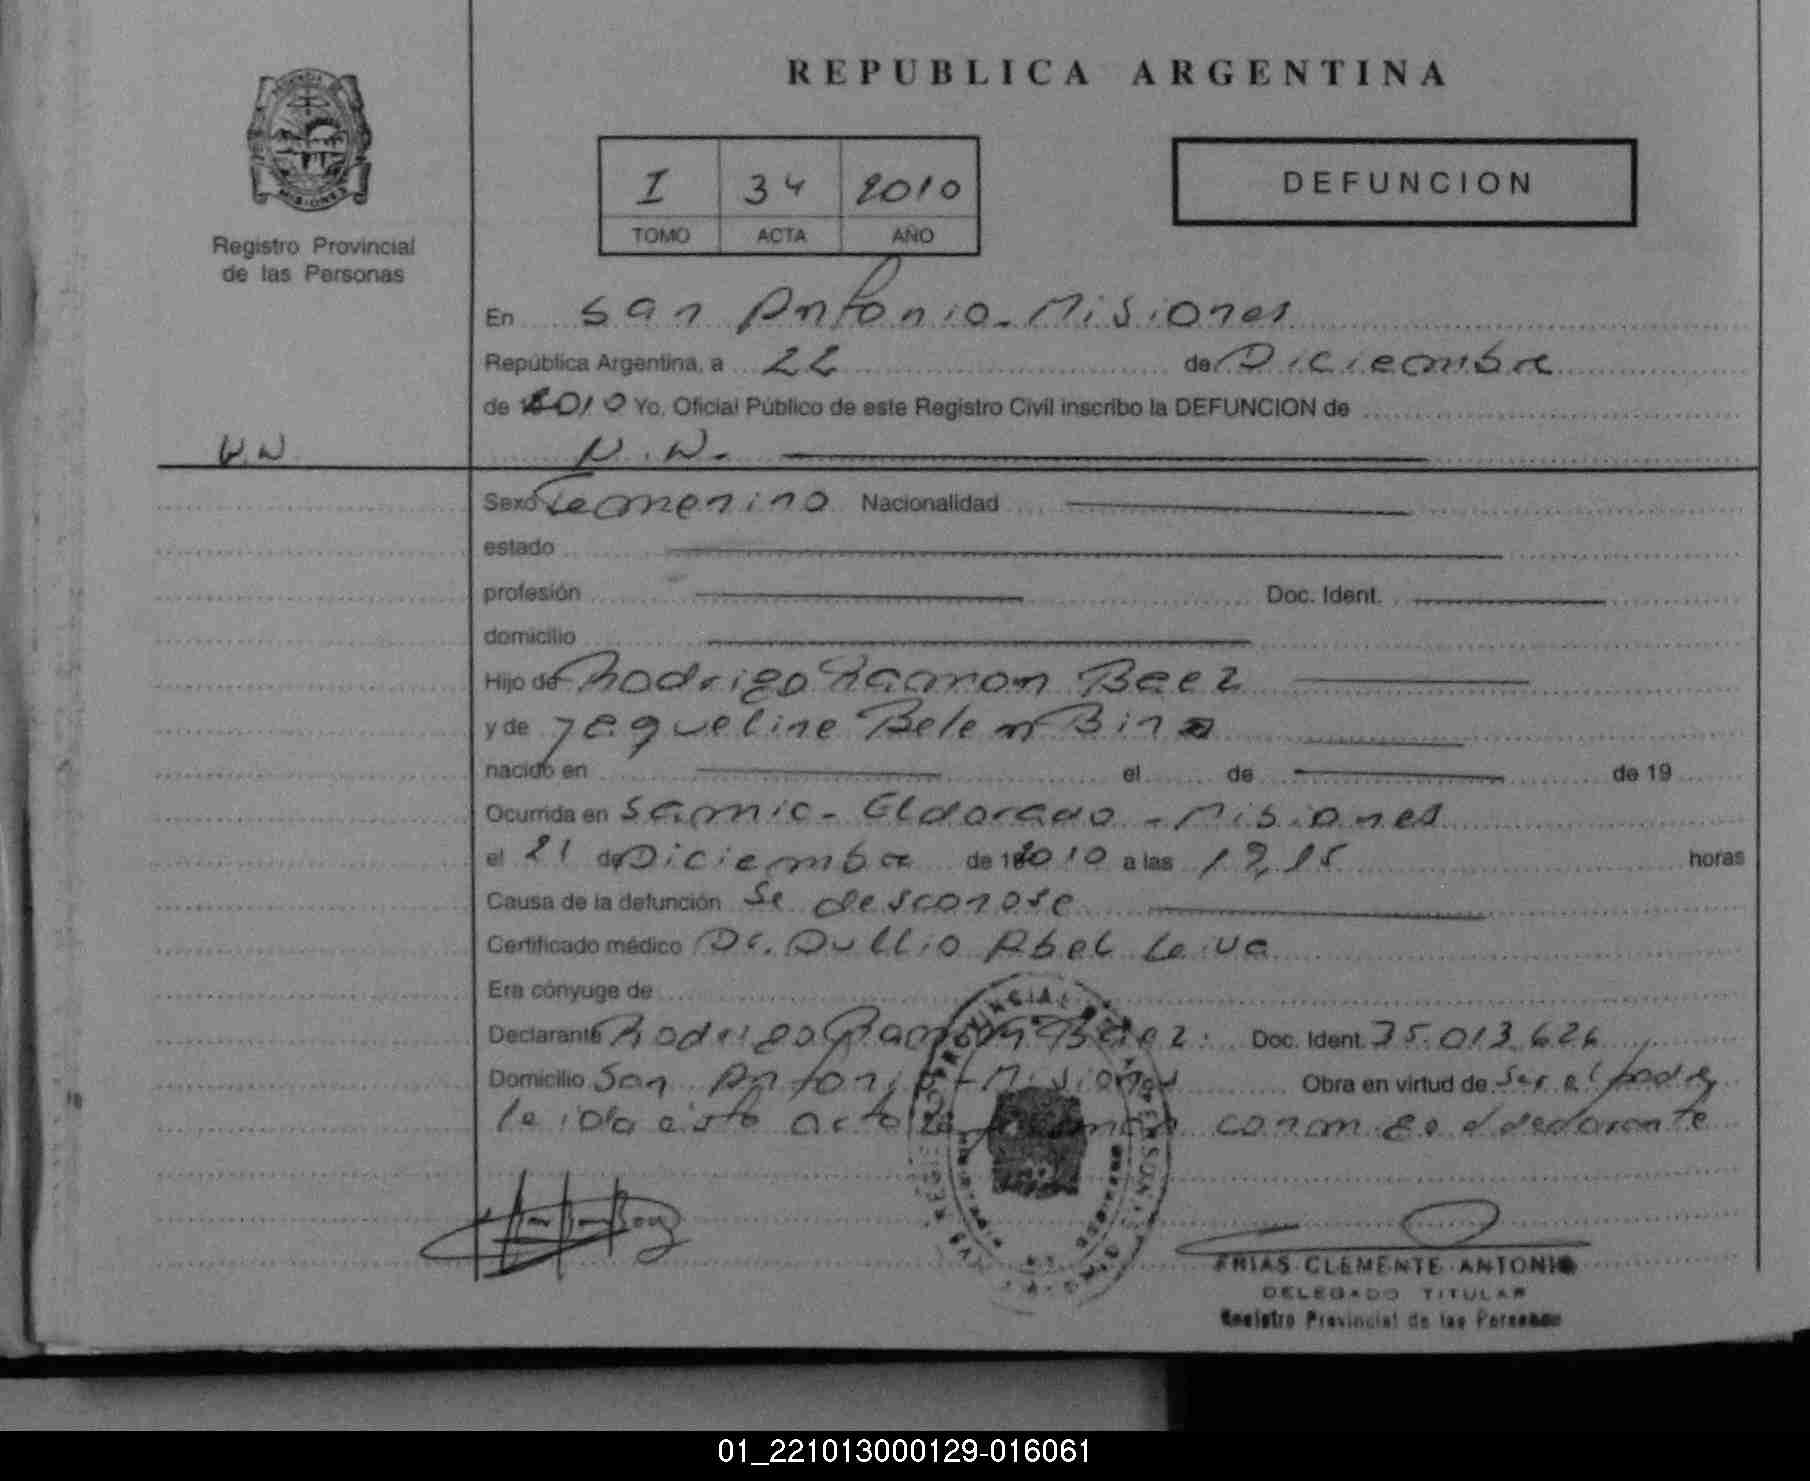 REPUBLICA ARGENTINA
MISIONES
Registro Provincial
de las Personas
I 34 2010
TOMO ACTA AÑO
DEFUNCION
En San Antonio - Misiones
República Argentina, a 22 de Diciembre
de 2010 Yo, Oficial Público de este Registro Civil inscribo la DEFUNCION de
N.N N.N.
Sexo Femenino Nacionalidad
estado
profesión Doc. Ident.
domicilio
Hijo de Rodrigo Ramon Baez
y de Jaqueline Belem
nacido en el de de 19
Ocurrida en Samic - Eldorado - Misiones
el 21 de Diciembre de 2010 a las 19,15 horas
Causa de la defunción Se desconose
Certificado médico Dr. Dullio Abel Leiva
Era cónyuge de
Declarante Rodrigo Ramon Baez Doc. Ident. 35.013.626
Domicilio San Antonio - Misiones Obra en virtud de Ser el padre
leida esta acta la firman conmigo el declarante
FRIAS CLEMENTE ANTONIO
DELEGADO TITULAR
Registro Provincial de las Personas
01_221013000129-016061